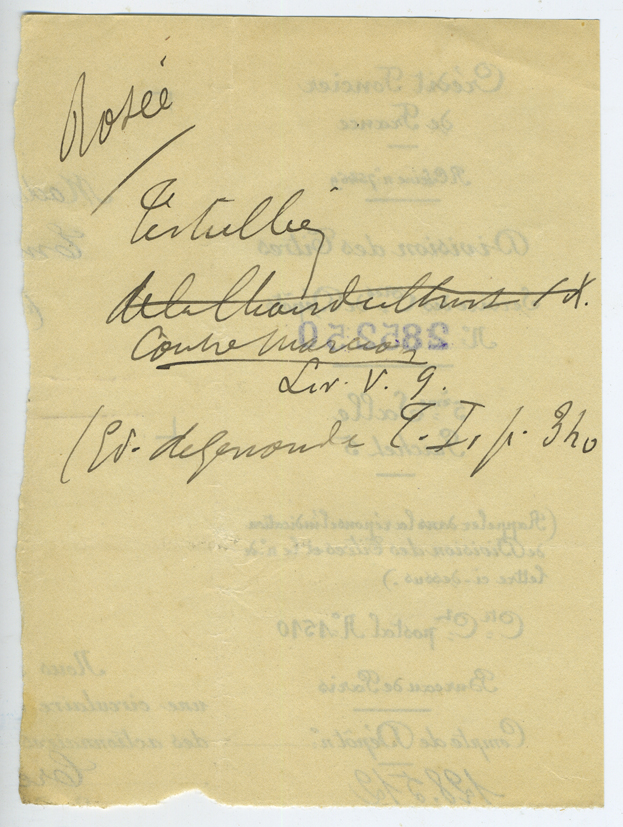 Rosée
Tertullien
de la Chair du Christ IX.
Contre Marcion
Liv. V. 9.
(Ed. de Genoude T. I, p. 340
Crédit Foncier
de France
Division des Titres
N° 285250
(Rappeler dans la réponse l'indication
de Division des Titres et le n° de
lettre ci-dessus.)
Cte Ct postal N° 1510
Bureau de Paris
Compte de Dépôt n°
Nous
une circulaire
des actionnaires